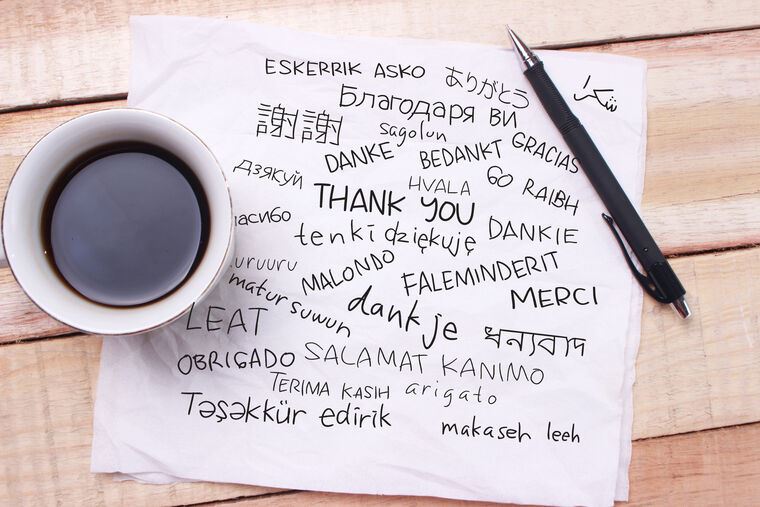 ESKERRIK ASKO
ありがとう
شكرا
Благодаря ви
謝謝
sagolun
GRACIAS
DANKE
BEDANKT
Дзякуй
HVALA
GO RAIBH
THANK YOU
асибо
tenki
dziękuję
DANKIE
uruuru
MALONDO
FALEMINDERIT
matur suwun
MERCI
LEAT
dank je
ধন্যবাদ
OBRIGADO
SALAMAT
KANIMO
TERIMA KASIH
arigato
Təşəkkür edirik
makaseh leeh